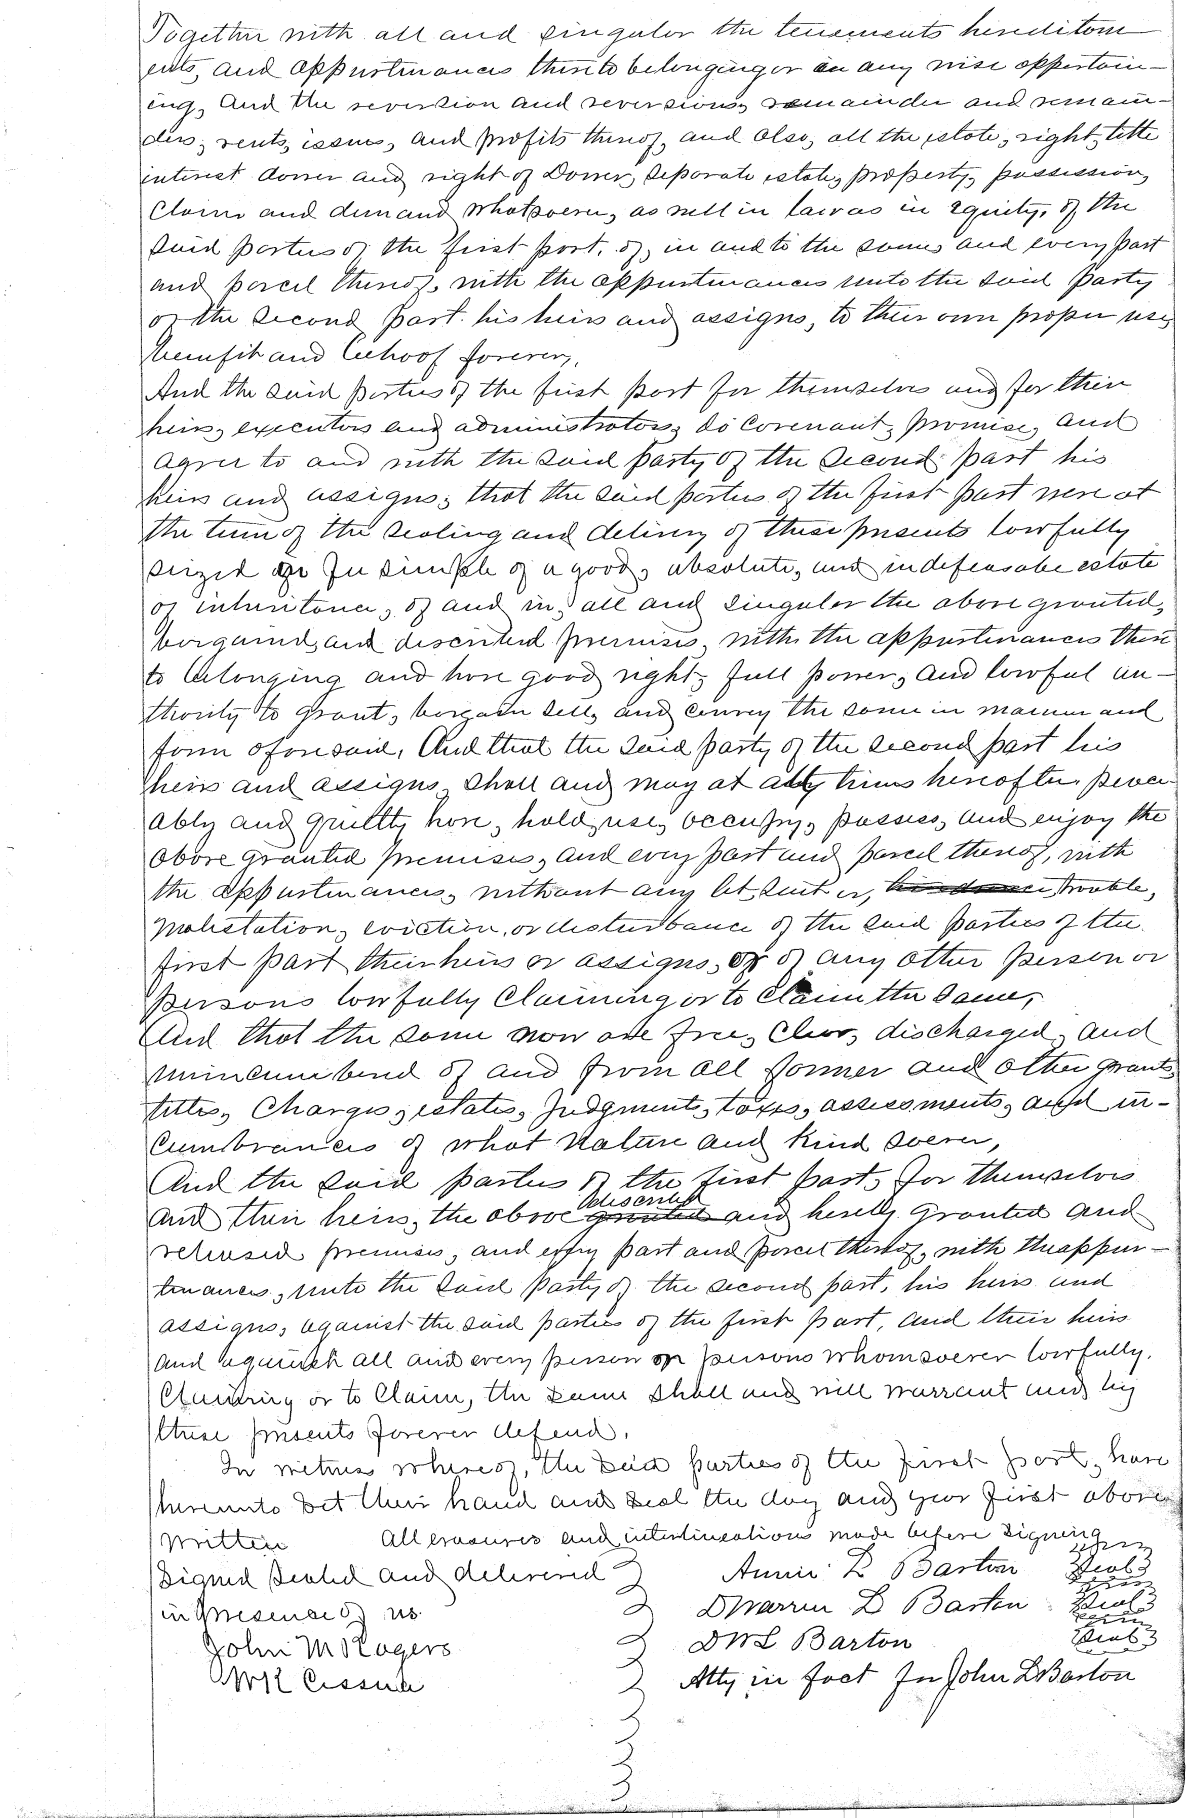 Together with all and singular the tenements hereditam
ents, and appurtinances thereto belonging or in any wise appertain-
ing, And the reversion and reversions, remainder and remain-
ders, rents, issues, and profits thereof, and also, all the estate, right, title
interest dower and right of Dower, separate estate, property, possession,
Claim and demand whatsoever, as well in law as in equity, of the
said parties of the first part, of, in and to the same and every part
and parcel thereof, with the appurtinances unto the said Party
of the second Part his heirs and assigns, to their own proper use,
benifit and behoof forever,
And the said parties of the first part for themselves and for their
heirs, executors and administrators, do covenant, promise, and
agree to and with the said party of the second part his
heirs and assigns, that the said parties of the first part were at
the time of the sealing and delivery of these presents lawfully
seized in Fee simple of a good, absolute, and indefeasabe estate
of inheritance, of and in, all and singular the above granted,
bargained, and described premises, with the appurtinances there
to belonging and have good right, full power, and lawful au-
thority to grant, bargain sell, and convey the same in manner and
form aforesaid, And that the said party of the second part his
heirs and assigns, shall and may at all times hereafter peace-
ably and quietly have, hold, use, occupy, possess, and enjoy the
above granted premises, and every part and parcel thereof, with
the appurtinances, without any let, suit or, hindrance, trouble,
molistation, eviction, or disturbance of the said parties of the
first part their heirs or assigns, or of any other person or
persons lawfully Claiming or to Claim the same,
And that the same now are free, Clear, discharged, and
unincumbered of and from all former and other grants,
titles, Charges, estates, Judgments, taxes, assessments, and in-
cumbrances of what Nature and Kind soever,
And the said parties of the first part, for themselves
described
and their heirs, the above granted and hereby granted and
released premises, and every part and parcel thereof, with the appur-
tinances, unto the said Party of the second part, his heirs and
assigns, against the said parties of the first part, and their heirs
and against all and every person or persons whomsoever lawfully.
Claiming or to Claim, the same shall and will warrant and by
these presents forever defend.
In witness whereof, the said parties of the first part, have
hereunto set their hand and seal the day and year first above
written All erasures and interlineations made before signing
Signed Sealed and delivered Annie L Barton Seal
in presence of us D Warren L Barton Seal
John M Rogers D W L Barton Seal
W K Cissna Atty in fact for John L Barton